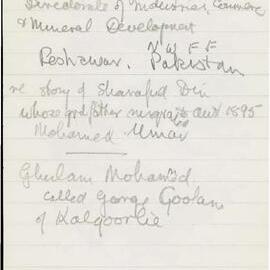 Directorate of Industries, Commerce
& Mineral Development
N W F F
Peshawar, Pakistan
re story of Sharafid Din
whose godfather migrated abt 1895
Mohamed Umar
Ghulam Mohamed
called George Goolam
of Kalgoorlie